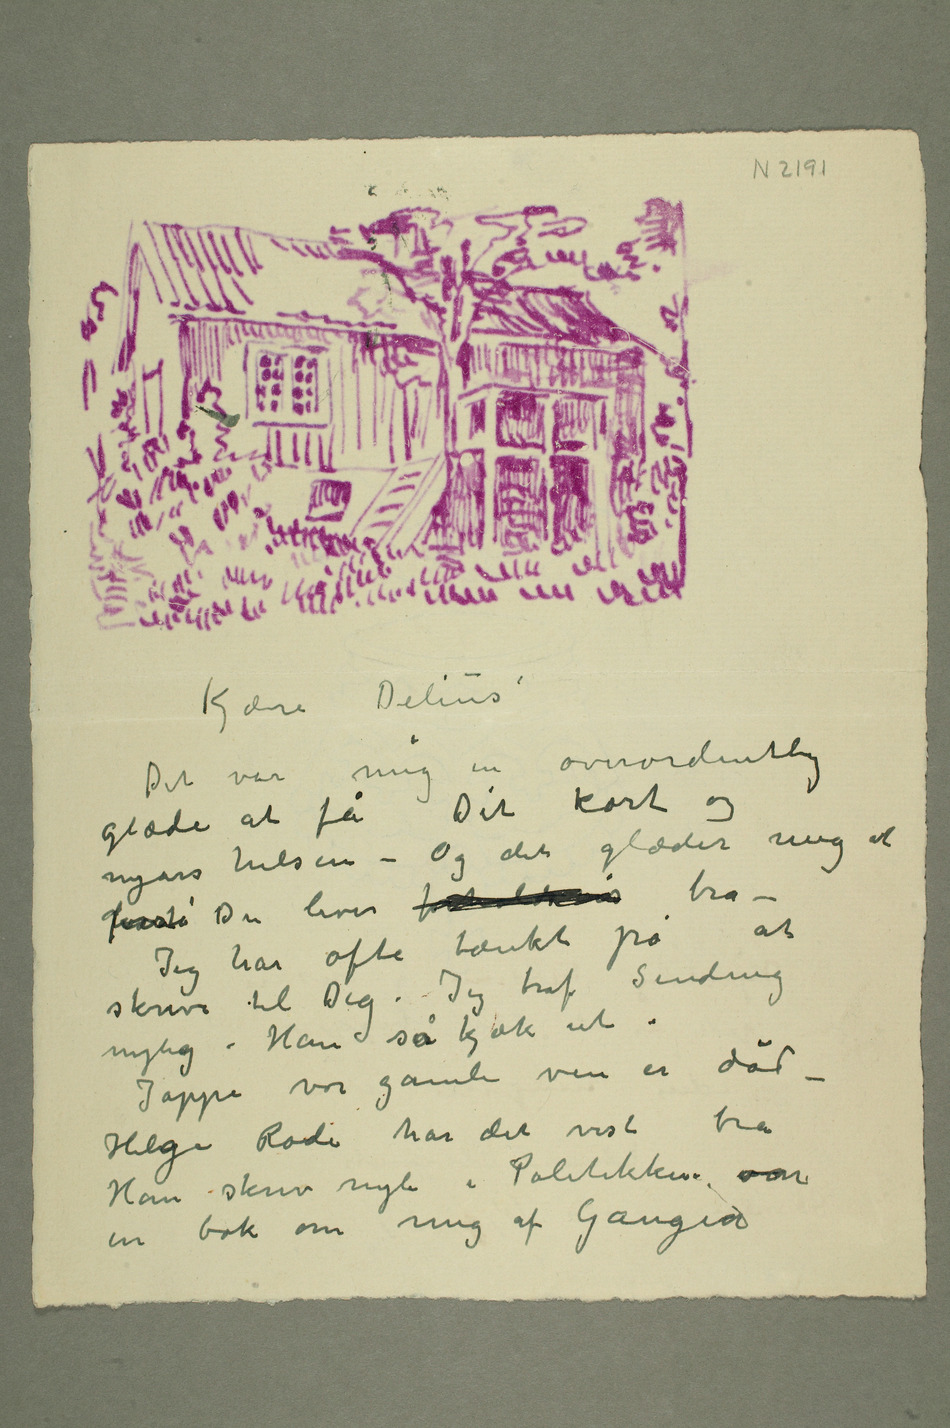 N 2191
Kjære Delius'
Det var mig en overordentlig
glæde at få Dit kort og
nyårs hilsen – Og det glæder mig at
Du lever bra –
Jeg har ofte tænkt på at
skrive til Dig. Jeg traf Sinding
nylig. Han så kjæk ut.
Jappe vor gamle ven er død –
Helge Rode har det vist bra
Han skrev nyli i Politikken, om
en bok om mig af Gauguin